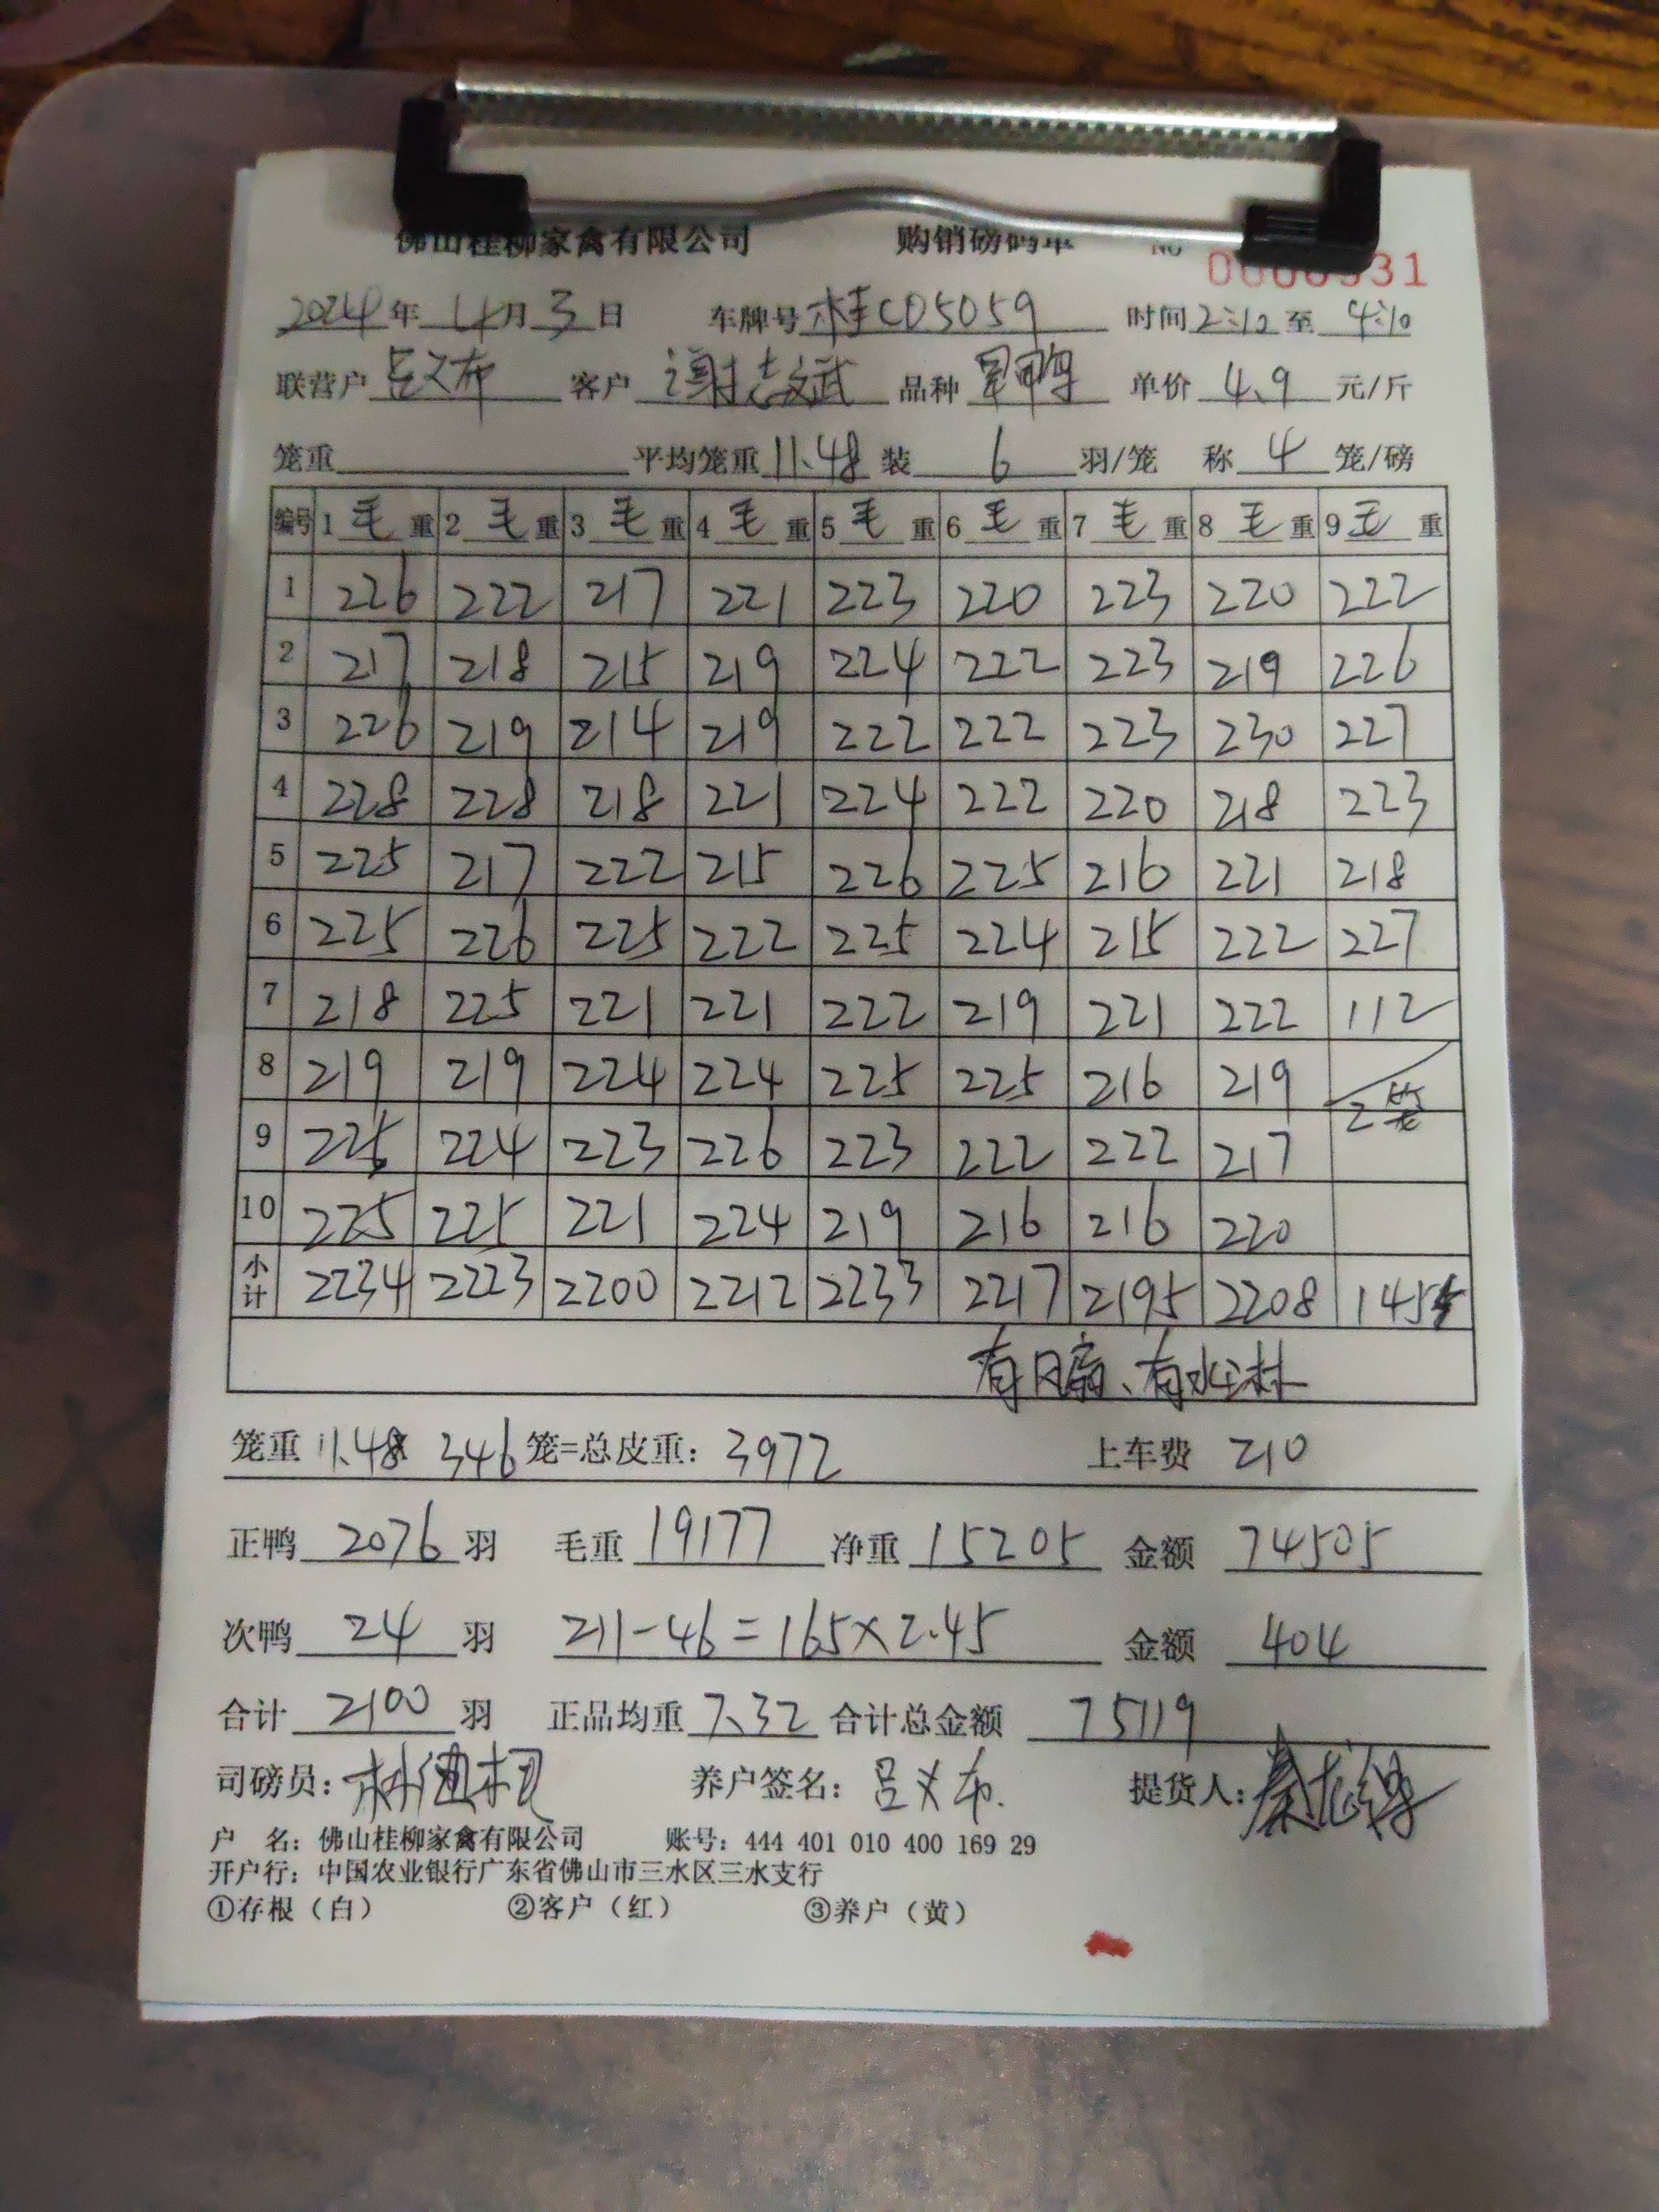 佛山桂柳家禽有限公司 购销磅码单 № 0000931
2024年 4月 3日 车牌号 桂CD5059 时间 2:10 至 4:10
联营户 吕义布 客户 谢志斌 品种 单价 4.9 元/斤
笼重 平均笼重 11.48 装 6 羽/笼 称 4 笼/磅
编号 1 毛 重 2 毛 重 3 毛 重 4 毛 重 5 毛 重 6 毛 重 7 毛 重 8 毛 重 9 毛 重
1 226 222 217 221 223 220 223 220 222
2 217 218 215 219 224 222 223 219 226
3 226 219 214 219 222 222 223 230 227
4 228 228 218 221 224 222 220 218 223
5 225 217 222 215 226 225 216 221 218
6 225 226 225 222 225 224 215 222 227
7 218 225 221 221 222 219 221 222 112
8 219 219 224 224 225 225 216 219
2笼
9 225 224 223 226 223 222 222 217
10 225 225 221 224 219 216 216 220
小计 2234 2223 2200 2212 2233 2217 2195 2208 1455
笼重 11.48 346 笼=总皮重: 3972 上车费 210
正鸭 2076 羽 毛重 19177 净重 15205 金额 74505
次鸭 24 羽 211-46=165×2.45 金额 404
合计 2100 羽 正品均重 7.32 合计总金额 75119
司磅员: 养户签名: 吕义布. 提货人:
户 名: 佛山桂柳家禽有限公司 账号: 444 401 010 400 169 29
开户行: 中国农业银行广东省佛山市三水区三水支行
①存根（白） ②客户（红） ③养户（黄）